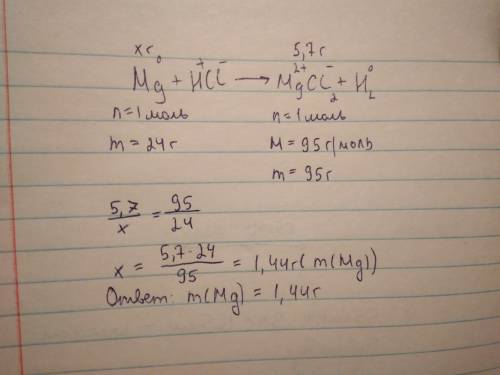 x г 5,7 г
Mg⁰ + H⁺Cl⁻ → Mg²⁺Cl₂⁻ + H₂⁰
n = 1 моль n = 1 моль
m = 24 г M = 95 г/моль
m = 95 г
5,7/x = 95/24
x = 5,7 · 24/95 = 1,44 г ( m(Mg))
Ответ: m(Mg) = 1,44 г